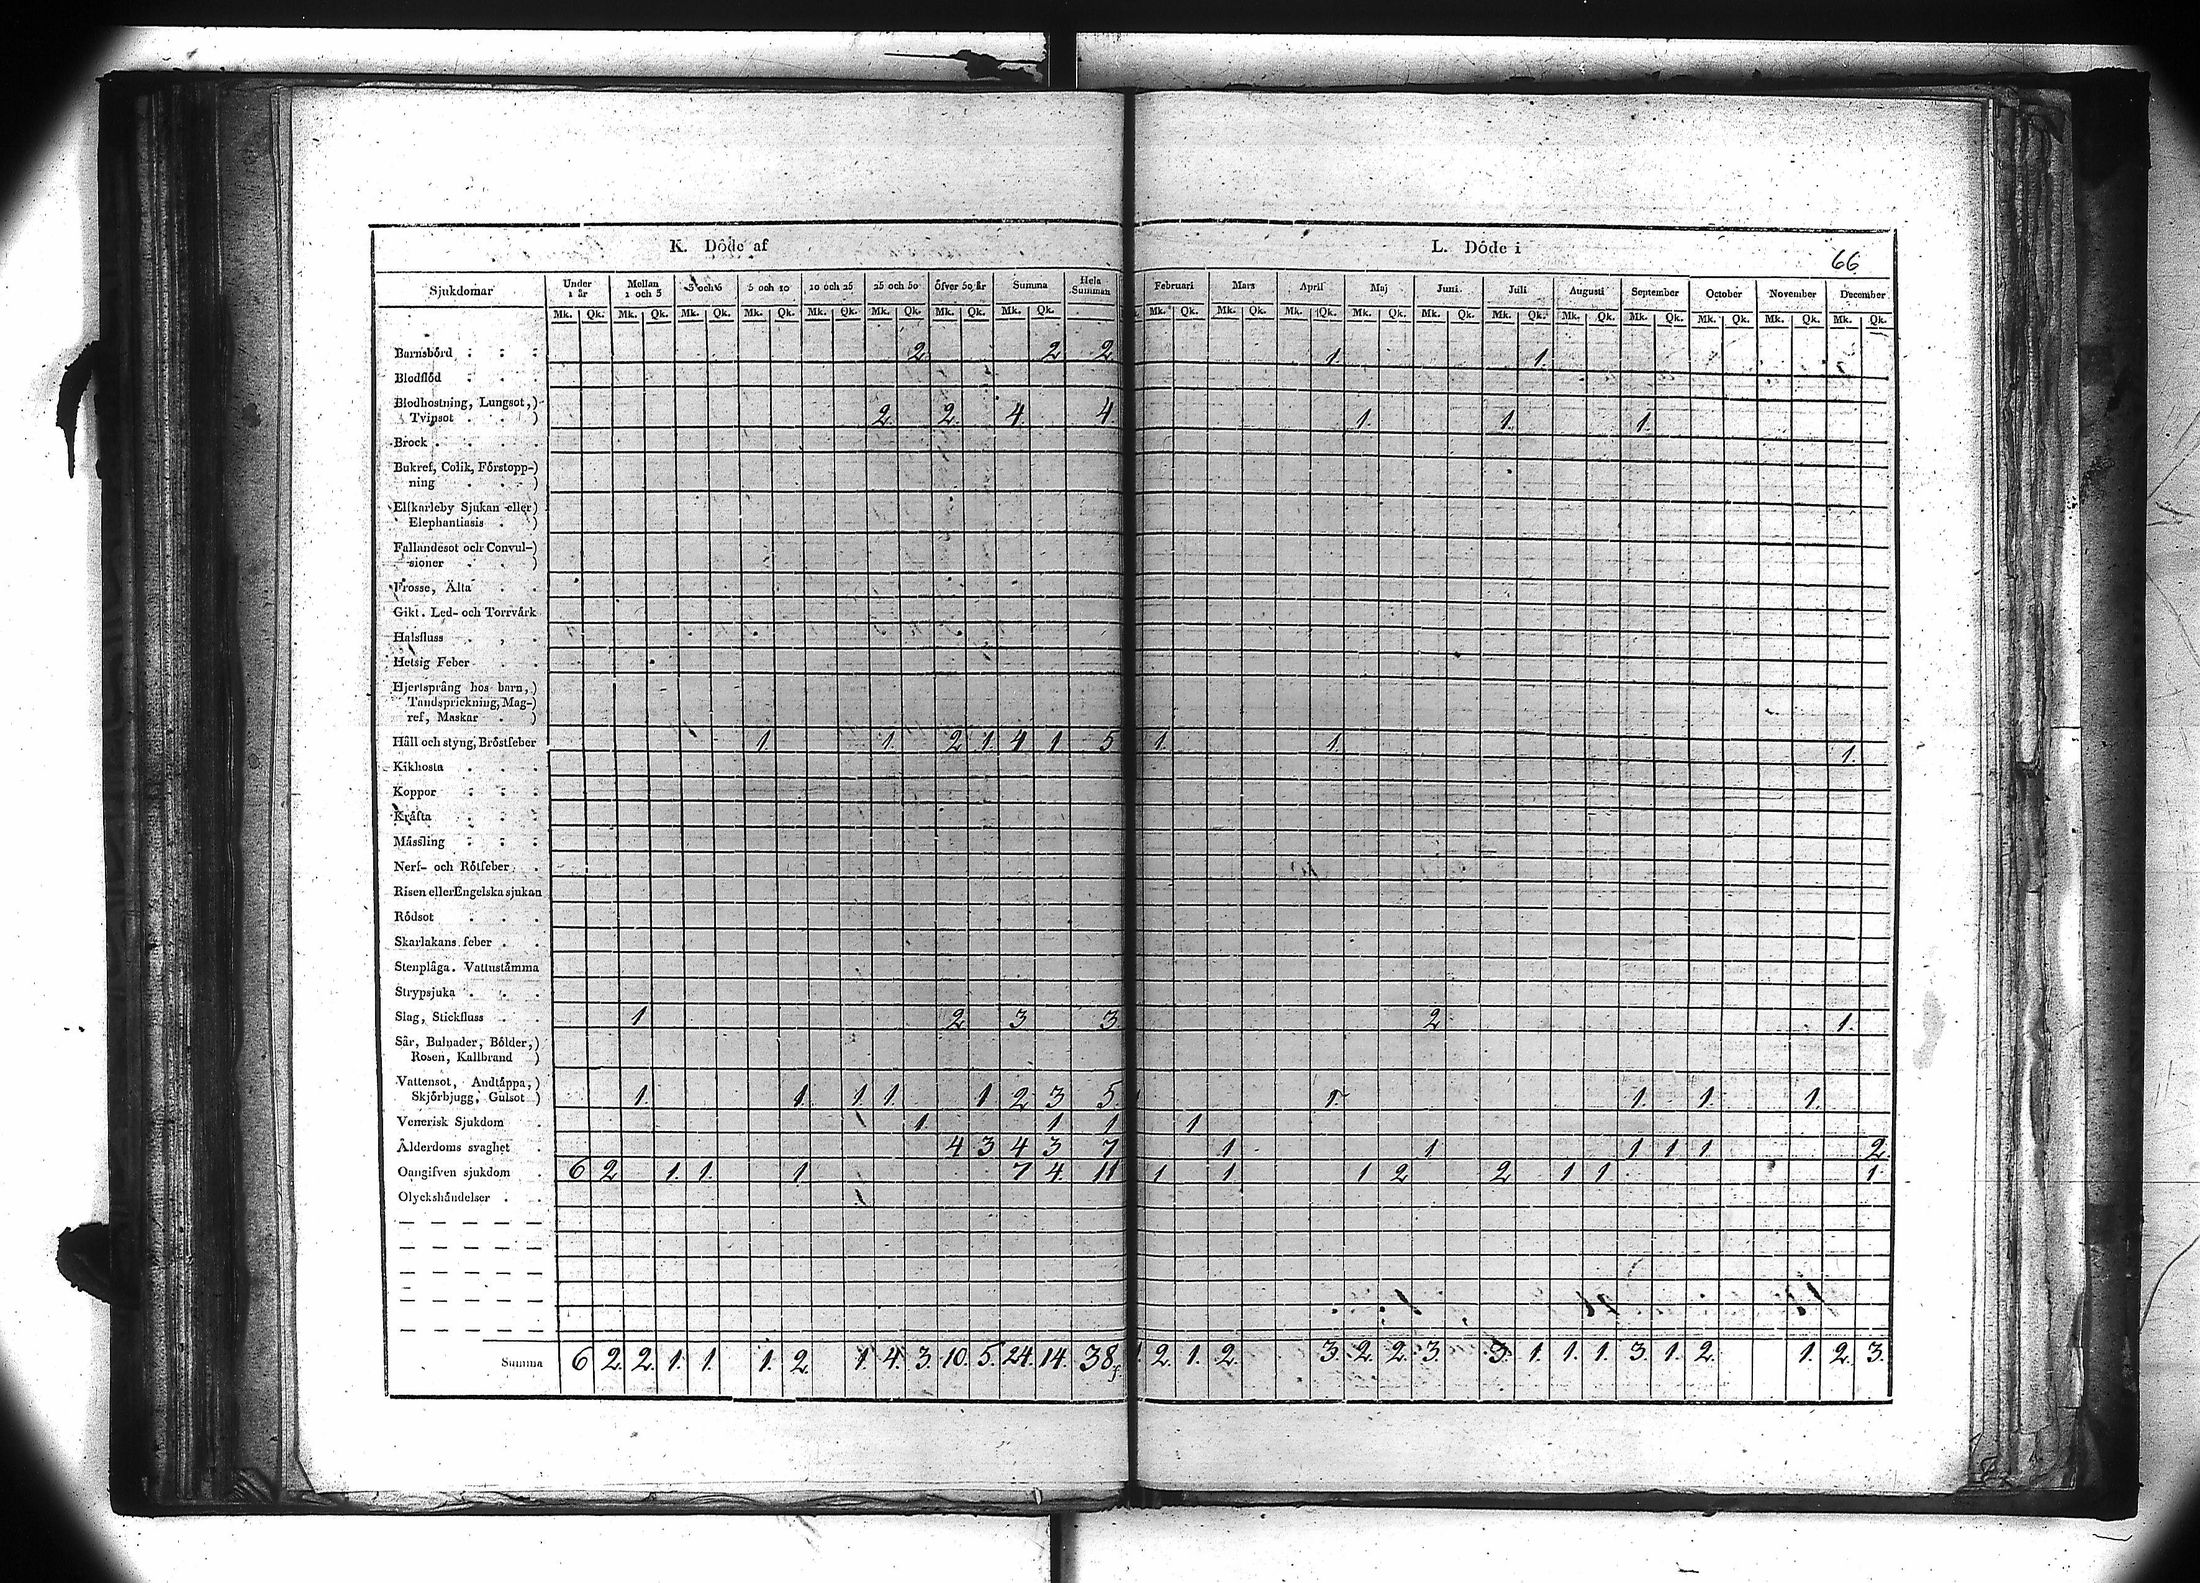 K. Döde af
L. Döde i
66
Sjukdomar Under 1 år Mellan 1 och 3 3 och 5 5 och 10 10 och 25 25 och 50 Öfver 50 år Summa Hela Summan Februari Mars April Maj Juni Juli Augusti September October November December
Mk. Qk. Mk. Qk. Mk. Qk. Mk. Qk. Mk. Qk. Mk. Qk. Mk. Qk. Mk. Qk. Mk. Qk. Mk. Qk. Mk. Qk. Mk. Qk. Mk. Qk. Mk. Qk. Mk. Qk. Mk. Qk. Mk. Qk. Mk. Qk. Mk. Qk.
Barnsbörd 2 2 2 1. 1.
Blodflöd
Blodhostning, Lungsot,)
Tvinsot ) 2 2 4 4 1. 1. 1.
Brock
Bukref, Colik, Förstopp-)
ning )
Elfkarleby Sjukan eller)
Elephantiasis )
Fallandesot och Convul-)
sioner )
Frosse, Älta
Gikt. Led- och Torrvärk
Halsfluss
Hetsig Feber
Hjertsprång hos barn,)
Tandsprickning, Mag-)
ref, Maskar )
Håll och styng, Bröstfeber 1. 1. 2 1 4 1 5 1. 1. 1.
Kikhosta
Koppor
Kräfta
Mässling
Nerf- och Rötfeber
Risen eller Engelska sjukan
Rödsot
Skarlakans feber
Stenplåga. Vattustämma
Strypsjuka
Slag, Stickfluss 1 2 3 3 2 1.
Sår, Bulnader, Bölder,)
Rosen, Kallbrand )
Vattensot, Andtäppa,)
Skjörbjugg, Gulsot ) 1. 1. 1. 1. 1 2 3 5 1. 1. 1. 1.
Venerisk Sjukdom 1. 1 1 1
Ålderdoms svaghet 4 3 4 3 7 1 1 1 1 1 2.
Oangifven sjukdom 6 2 1. 1. 1 7 4. 11 1 1 1 2 2 1 1 1.
Olyckshändelser
Summa 6 2. 2. 1. 1. 1. 2. 1. 4. 3. 10. 5. 24. 14. 38. 1. 2. 1. 2. 3. 2. 2. 3. 3. 1. 1. 1. 3. 1. 2. 1. 2. 3.